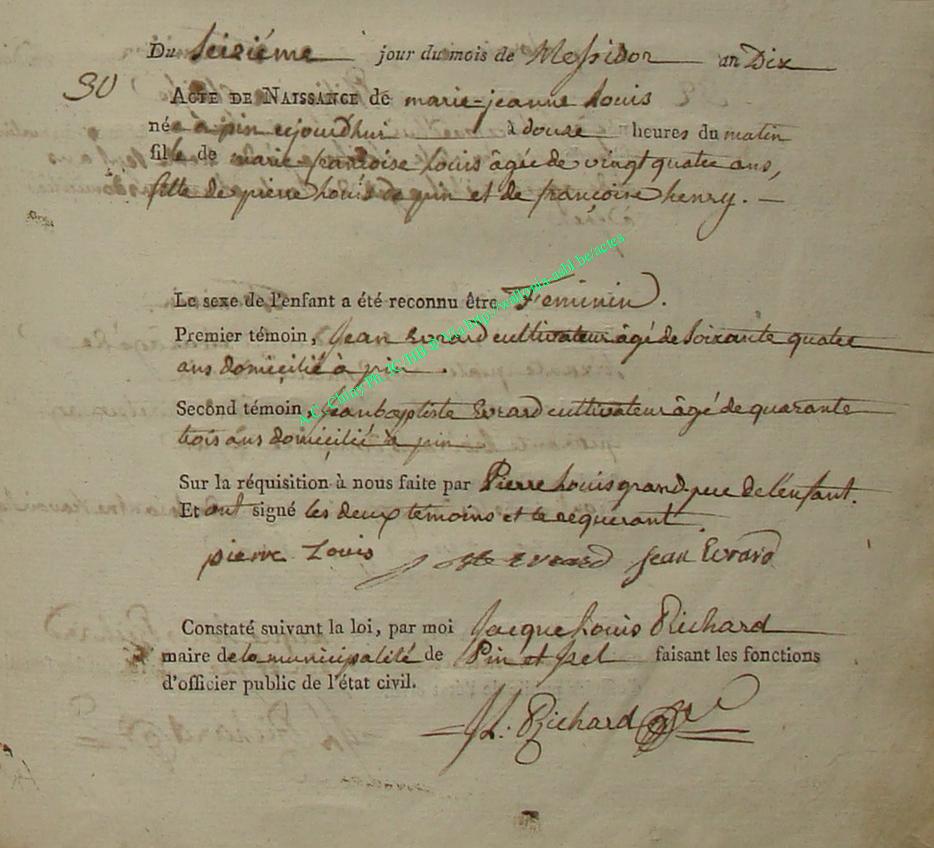 Du Seiziéme jour du mois de Messidor an Dix
30
ACTE DE NAISSANCE de marie-jeanne Louis
née à pin cejourdhui à douze heures du matin
fille de marie françoise Louis âgée de vingt quatre ans,
fille de pierre Louis de pin et de françoise henry. —
Le sexe de l'enfant a été reconnu être Féminin.
Premier témoin, Jean Evrard cultivateur âgé de soixante quatre
ans domicilié à pin.
Second témoin, Jean baptiste Evrard cultivateur âgé de quarante
trois ans domicilié à pin
Sur la réquisition à nous faite par Pierre Louis grand-pere de l'enfant.
Et ont signé les deux témoins et le requérant
pierre Louis J Bte Evrard Jean Evrard
Constaté suivant la loi, par moi Jacque Louis Richard
maire de la municipalité de Pin et Izel faisant les fonctions
d'officier public de l'état civil.
JL. Richard